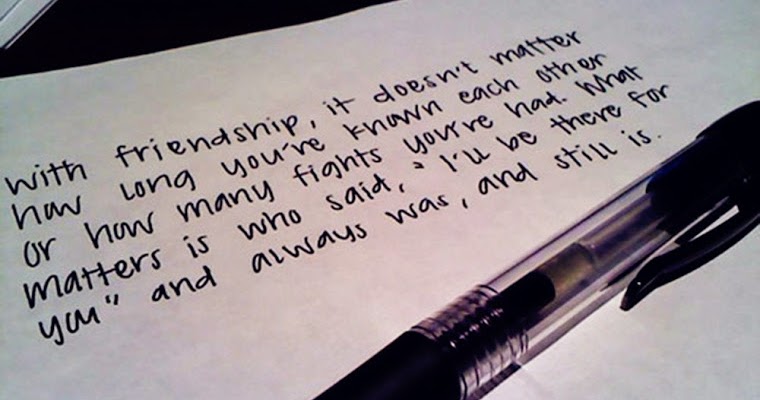 with friendship, it doesn't matter
how long you've known each other
or how many fights you've had. What
matters is who said, "I'll be there for
you" and always was, and still is.